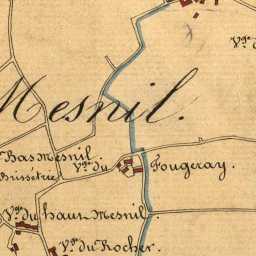 Vge d
Mesnil.
Bas Mesnil.
Brissetrie
Vge du Fougeray.
Vge du haut Mesnil.
Vge du Rocher.